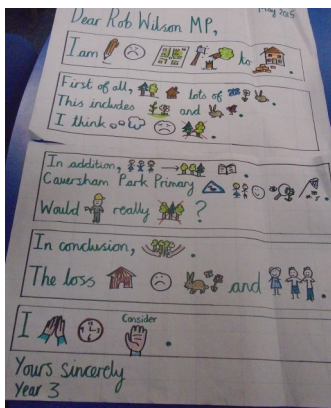 May 2015
Dear Rob Wilson MP,
I am to .
First of all, lots of .
This includes and .
I think .
In addition, .
Caversham Park Primary
Would really ?
In conclusion, .
The loss and .
Consider
I .
Yours sincerely
Year 3